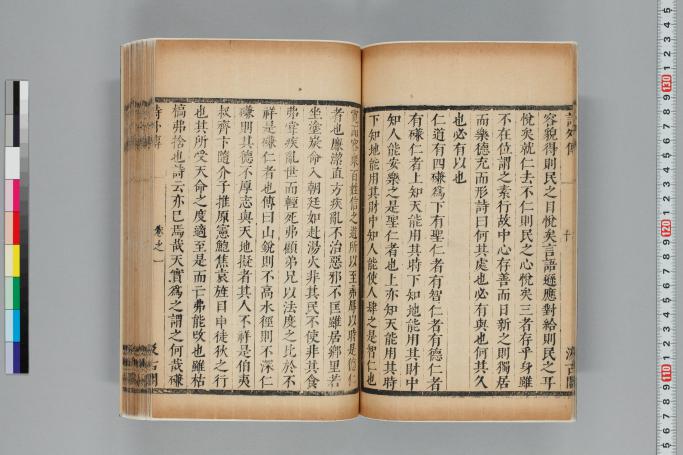 容貌得則民之目悅矣言語遜應對給則民之耳
悅矣就仁去不仁則民之心悅矣三者存乎身雖
不在位謂之素行故中心存善而日新之則獨居
而樂德充而形詩曰何其處也必有與也何其久
也必有以也
仁道有四磏為下有聖仁者有智仁者有德仁者
有磏仁者上知天能用其時下知地能用其財中
知人能安樂之是聖仁者也上亦知天能用其時
下知地能用其財中知人能使人肆之是智仁也
寬而容眾百姓信之道所以至弗辱以時是德仁
者也廉潔直方疾亂不治惡邪不匡雖居鄉里若
坐塗炭命入朝廷如赴湯火非其民不使非其食
弗嘗疾亂世而輕死弗顧弟兄以法度之比於不
祥是磏仁者也傳曰山銳則不高水徑則不深仁
磏則其德不厚志與天地擬者其人不祥是伯夷
叔齊卞隨介子推原憲鮑焦袁旌目申徒狄之行
也其所受天命之度適至是而亡弗能改也雖枯
槁弗捨也詩云亦已焉哉天實為之謂之何哉磏
詩外傳
卷之一
汲古閣